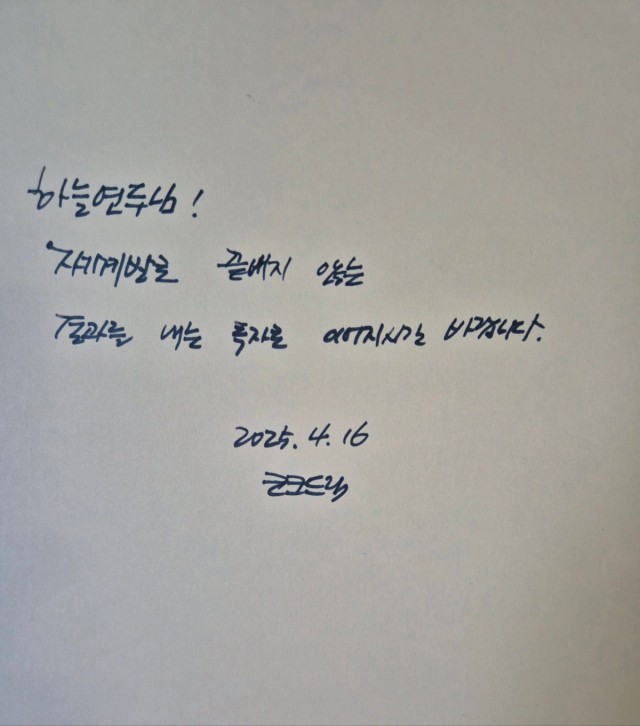 하늘연주님!
자기계발로 끝내지 않는
결과를 내는 독자로 이어지시길 바랍니다.
2025. 4. 16